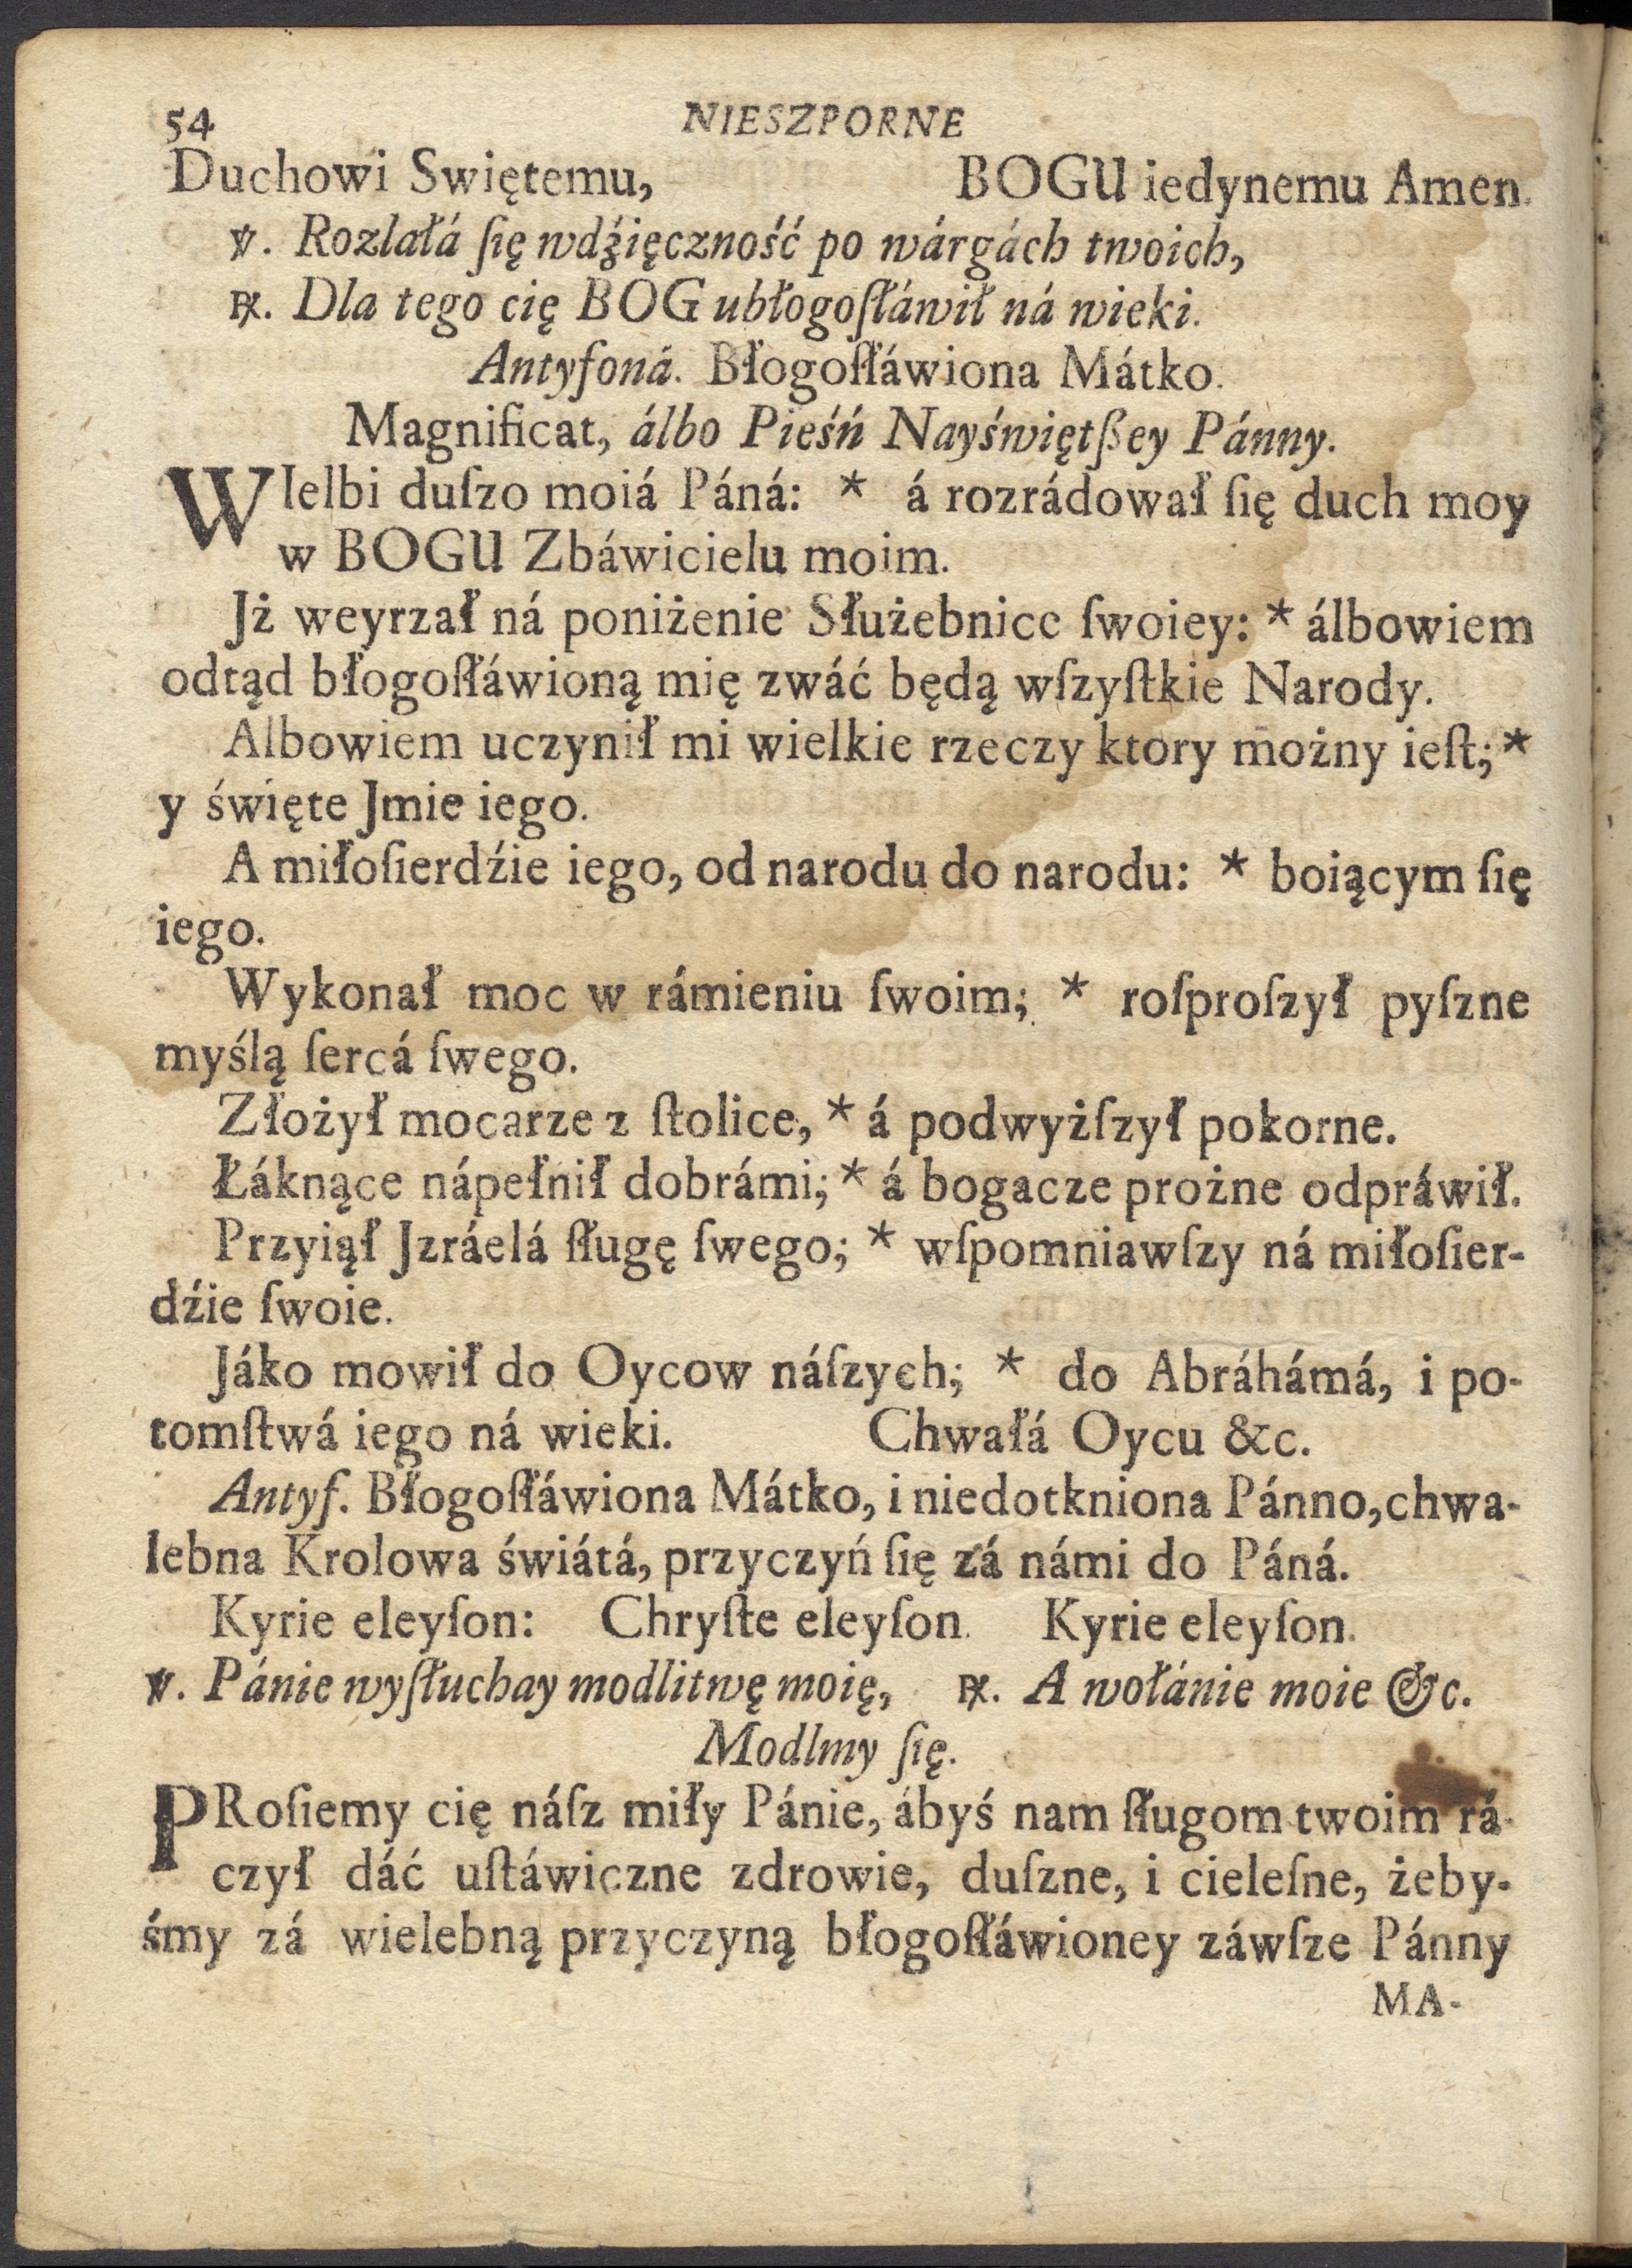 54 NIESZPORNE
Duchowi Swiętemu, BOGU iedynemu Amen.
℣. Rozlałá ſię wdźięczność po wárgách twoich,
℞. Dla tego cię BOG ubłogoſłáwił ná wieki.
Antyfoná. Błogoſłáwiona Mátko.
Magnificat, álbo Pieśń Nayświętßey Pánny.
WIelbi duſzo moiá Páná: * á rozrádował ſię duch moy
w BOGU Zbáwicielu moim.
Jż weyrzał ná poniżenie Służebnice ſwoiey: * álbowiem
odtąd błogoſłáwioną mię zwáć będą wſzyſtkie Narody.
Albowiem uczynił mi wielkie rzeczy ktory możny ieſt; *
y święte Jmie iego.
A miłoſierdźie iego, od narodu do narodu: * boiącym ſię
iego.
Wykonał moc w rámieniu ſwoim; * roſproſzył pyſzne
myślą ſercá ſwego.
Złożył mocarze z ſtolice, * á podwyżſzył pokorne.
Łáknące nápełnił dobrámi; * á bogacze prożne odpráwił.
Przyiął Jzráelá ſługę ſwego; * wſpomniawſzy ná miłoſier-
dźie ſwoie.
Jáko mowił do Oycow náſzych; * do Abráhámá, i po-
tomſtwá iego ná wieki. Chwałá Oycu &c.
Antyf. Błogoſłáwiona Mátko, i niedotkniona Pánno, chwa-
lebna Krolowa świátá, przyczyń ſię zá námi do Páná.
Kyrie eleyſon: Chryſte eleyſon. Kyrie eleyſon.
℣. Pánie wyſłuchay modlitwę moię, ℞. A wołánie moie &c.
Modlmy ſię.
PRoſiemy cię náſz miły Pánie, ábyś nam ſługom twoim rá-
czył dáć uſtáwiczne zdrowie, duſzne, i cieleſne, żeby-
śmy zá wielebną przyczyną błogoſłáwioney záwſze Pánny
MA-